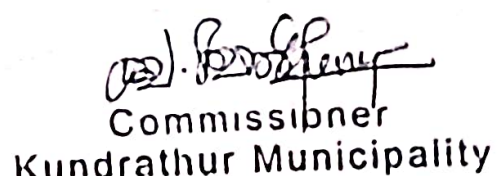 Commissioner
Kundrathur Municipality